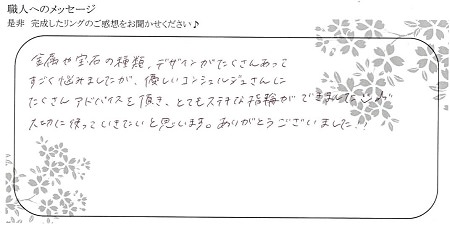 職人へのメッセージ
是非 完成したリングのご感想をお聞かせください♪
金属や宝石の種類、デザインがたくさんあって
すごく悩みましたが、優しいコンシェルジュさんに
たくさんアドバイスを頂き、とてもステキな指輪ができました
大切に使っていきたいと思います。ありがとうございました!!